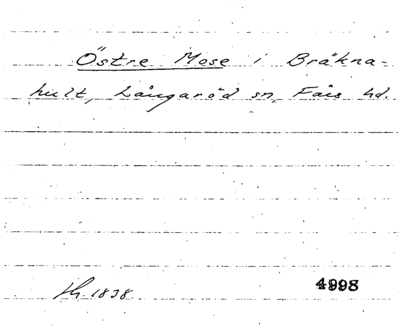 Östre Mose i Bräkna-
hult, Långaröd sn, Fäis hd.
1838
4998